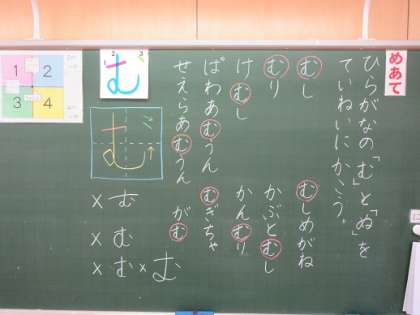 めあて
ひらがなの「む」と「ぬ」を
ていねいにかこう。
むし
むしめがね
むり
かぶとむし
けむし
かんむり
ぱわあむうん
むぎちゃ
せえらあむうん
がむ
む
1 2
3 4
む
×む
×む
×む×む